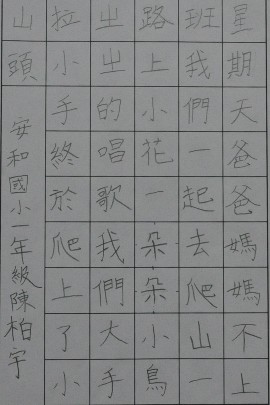 星期天爸爸媽媽不上
班我們一起去爬山一
路上小花一朵朵小鳥
出出的唱歌我們大手
拉小手終於爬上了小
山頭
安和國小一年級陳柏宇